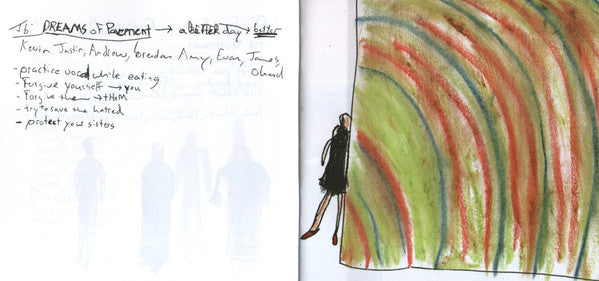 Jb: DREAMS of Pavement → a BETTER day → better
Kevin Justin, Andrew, brendan Amy, Evan, James,
- practice vocal while eating
- Forgive yourself → you
- Forgive them → tHeM
- try to save the hatred
- protect your sisters